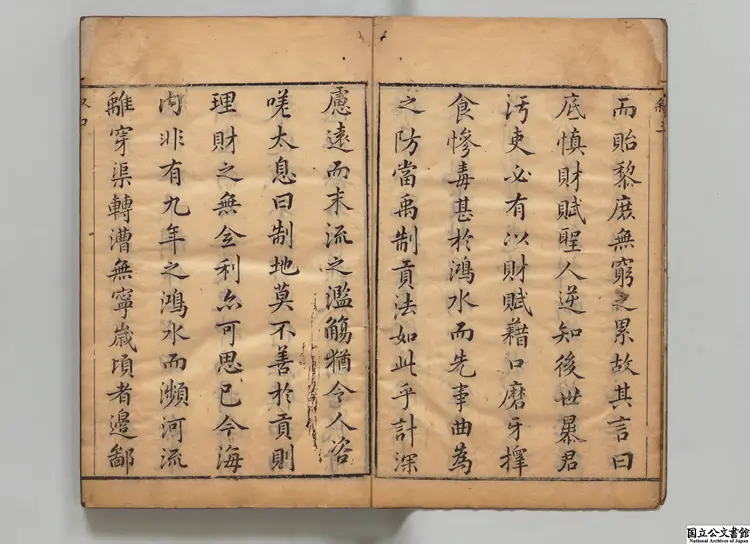 敘三
而貽黎庶無窮之累故其言曰
底慎財賦聖人逆知後世暴君
汚吏必有以財賦藉口磨牙擇
食慘毒甚於鴻水而先事曲為
之防當禹制貢法如此乎計深
慮遠而末流之濫觴猶令人咨
嗟太息曰制地莫不善於貢則
理財之無全利亦可思已今海
内非有九年之鴻水而瀕河流
離穿渠轉漕無寧歲頃者邊鄙
敘四
国立公文書館
National Archives of Japan